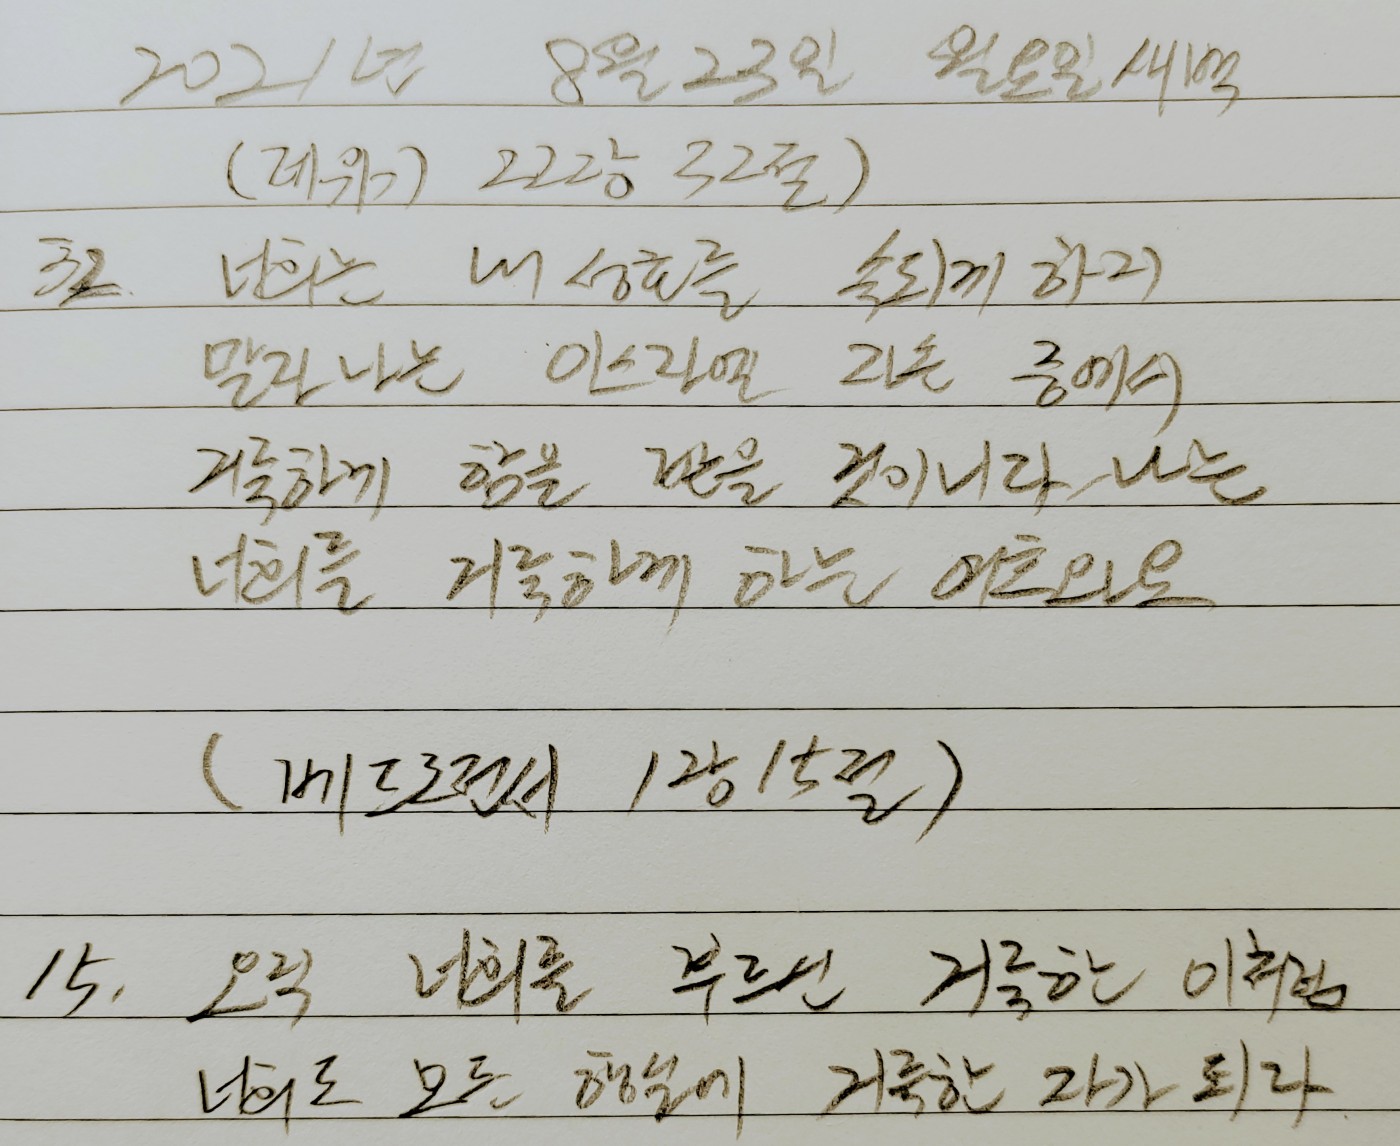 2021년 8월 23일 월요일 새벽
(레위기 22장 32절)
32. 너희는 내 성호를 속되게 하지
말라 나는 이스라엘 자손 중에서
거룩하게 함을 받을 것이니라 나는
너희를 거룩하게 하는 여호와요
(베드로전서 1장 15절)
15. 오직 너희를 부르신 거룩한 이처럼
너희도 모든 행실에 거룩한 자가 되라